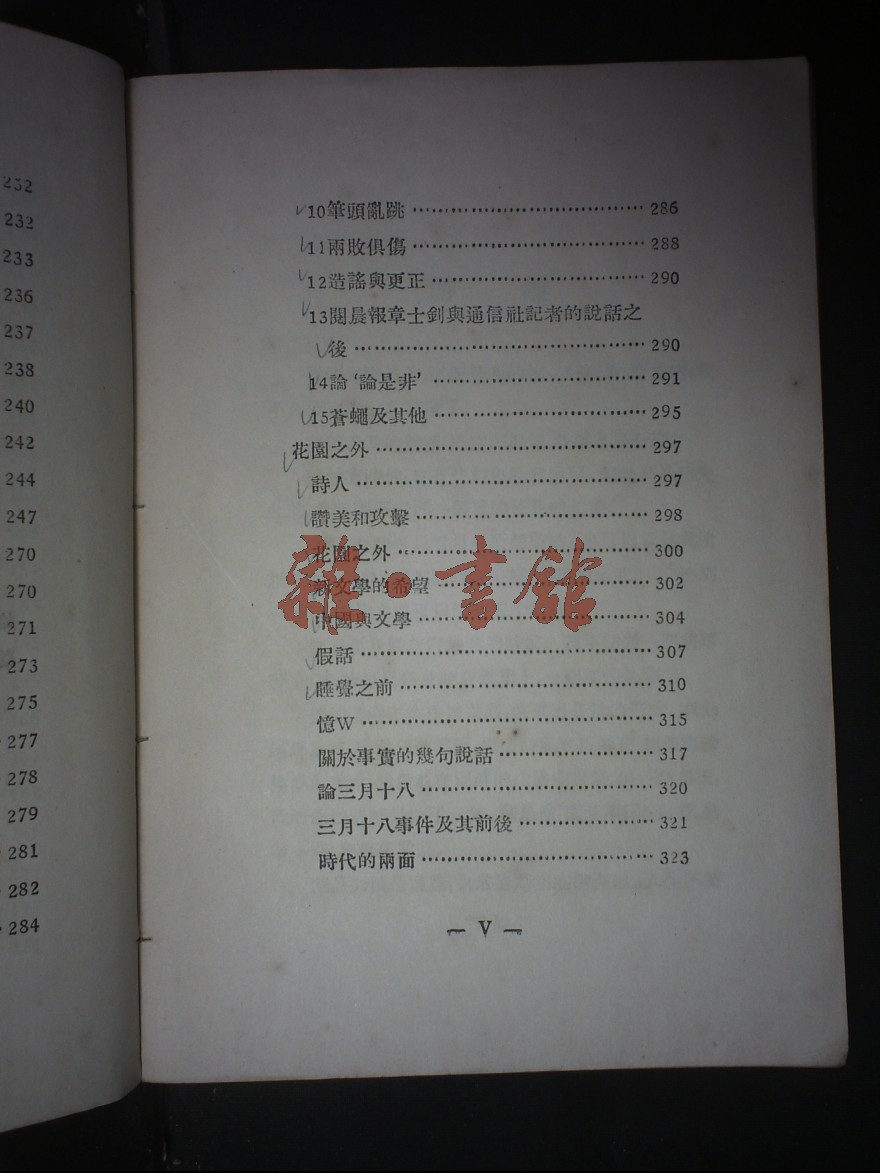 232
232
233
236
237
238
240
242
244
247
270
270
271
273
275
277
278
279
281
282
284
10筆頭亂跳 286
11兩敗俱傷 288
12造謠與更正 290
13閱晨報章士釗與通信社記者的說話之
後 290
14論‘論是非’ 291
15蒼蠅及其他 295
花園之外 297
詩人 297
讚美和攻擊 298
花園之外 300
新文學的希望 302
中國與文學 304
假話 307
睡覺之前 310
憶W 315
關於事實的幾句說話 317
論三月十八 320
三月十八事件及其前後 321
時代的兩面 323
— V —
雜·書館